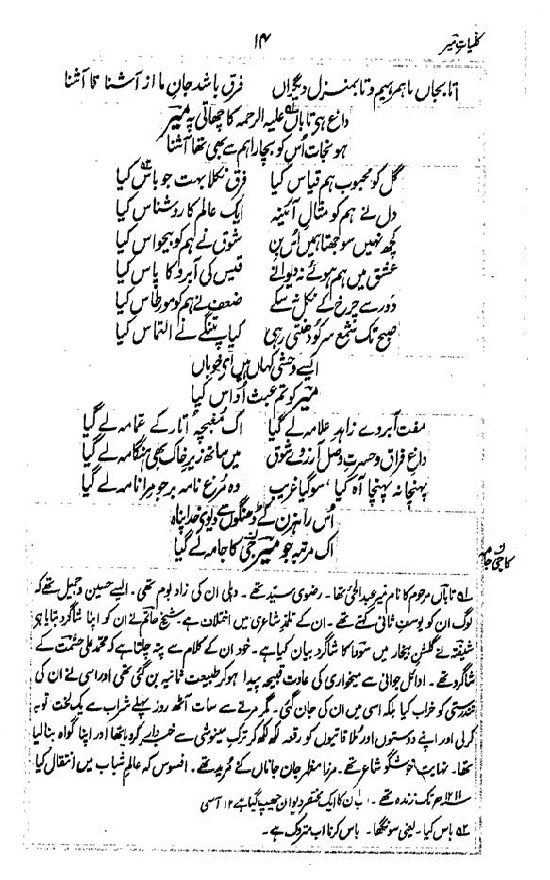 کلیات میر
۱۴
تا بجاں ما ہمرہیم و تا بمنزل دیگراں فرق باشد جانِ ما از آشنا تا آشنا
داغ ہے تاباں علیہ الرحمہ کا چھاتی پہ میر
ہو نجات اُس کو بچارا ہم سے بھی تھا آشنا
گل کو محبوب ہم قیاس کیا فرق نکلا بہت جو باس کیا
دل نے ہم کو مثالِ آئینہ ایک عالم کا روشناس کیا
کچھ نہیں سوجھتا ہمیں اُس بن شوق نے ہم کو بیحواس کیا
عشق میں ہم ہوئے نہ دیوانے قیس کی آبرو کا پاس کیا
دور سے چرخ کے نکل نہ سکے ضعف نے ہم کو مورِ طاس کیا
صبح تک شمع سر کو دھنتی رہی کیا پتنگے نے التماس کیا
ایسے وحشی کہاں ہیں اے خوباں
میر کو تم عبث اُداس کیا
مفت آبروے زاہد علامہ لے گیا اک مُغبچہ اُتار کے عمّامہ لے گیا
داغِ فراق و حسرتِ وصل آرزوے شوق میں ساتھ زیرِ خاک بھی ہنگامہ لے گیا
پہنچا نہ پہنچا آہ گیا، سو گیا غریب وہ مُرغِ نامہ بر جو مرا نامہ لے گیا
اُس راہزن کے ڈھنگوں سے دیوے خدا پناہ
اک مرتبہ جو میر جی کا جامہ لے گیا
کا جی جامہ
۵۱ تاباں مرحوم کا نام میر عبدالحئی تھا۔ رضوی سیّد تھے۔ دہلی ان کی زاد بوم تھی۔ ایسے حسین و جمیل تھے کہ
لوگ ان کو یوسفِ ثانی کہتے تھے۔ ان کے تلمذِ شاعری میں اختلاف ہے شیخ حاتم نے ان کو اپنا شاگرد بتایا ہے
شیفتہ نے گلشنِ بیخار میں سودا کا شاگرد بیان کیا ہے۔ خود ان کے کلام سے پتہ چلتا ہے کہ محمد علی حشمت کے
شاگرد تھے۔ اوائل جوانی سے میخواری کی عادت قبیحہ پیدا ہو کر طبیعت ثانیہ بن گئی تھی اور اسی نے ان کی
تندرستی کو خراب کیا بلکہ اسی میں ان کی جان گئی۔ مگر مرنے سے سات آٹھ روز پہلے شراب سے یک لخت توبہ
کرلی اور اپنے دوستوں اور ملاقاتیوں کو رقعہ لکھ لکھ کر ترکِ مینوشی سے خبردار کردیا تھا اور اپنا گواہ بنالیا
تھا۔ نہایت خوشگو شاعر تھے۔ مرزا مظہر جان جاناں کے مُرید تھے۔ افسوس کہ عالمِ شباب میں انتقال کیا
تک زندہ تھے۔ ان کا ایک مختصر دیوان چھپ گیا ہے ۱۲ آسی
۵۲ باس کیا۔ یعنی سونگھا۔ باس کرنا اب متروک ہے۔